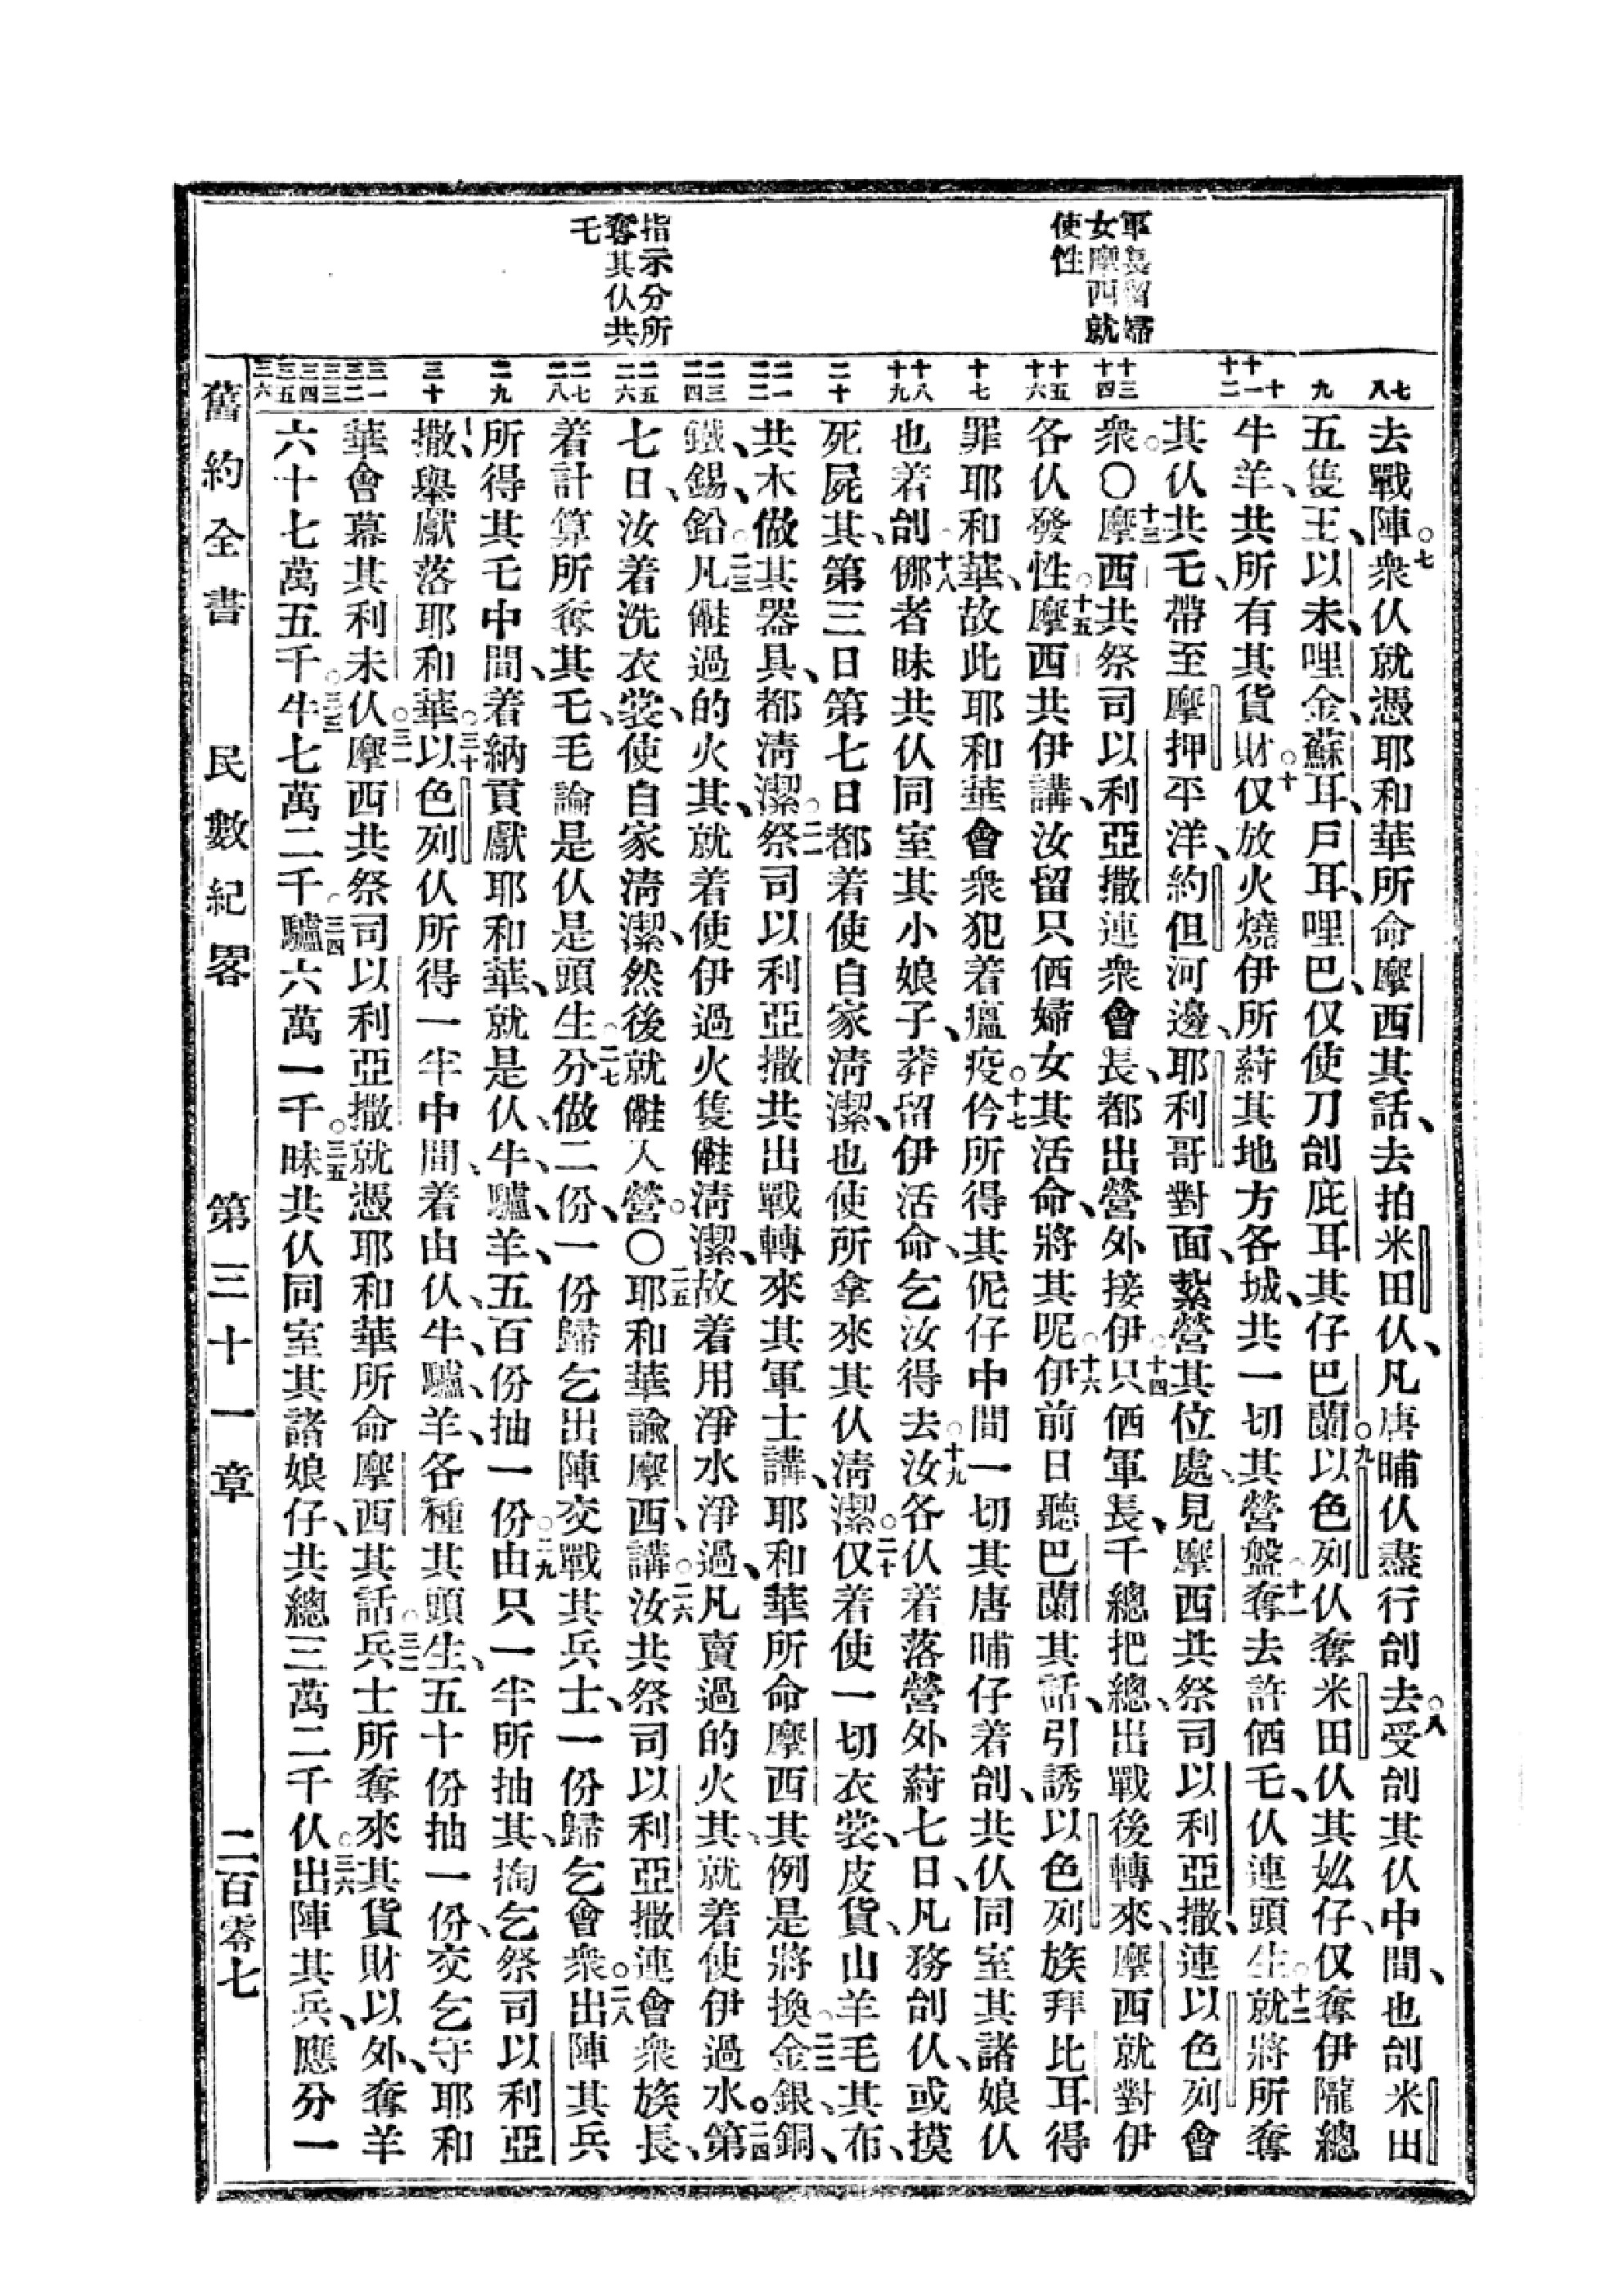 軍長留婦
女摩西就
使性
指示分所
奪其仈共
乇
七 八 九 十 十一 十二 十三 十四 十五 十六 十七 十八 十九 二十 二一 二二 二三 二四 二五 二六 二七 二八 二九 三十 三一 三二 三三 三四 三五 三六
去戰陣○七衆仈就憑耶和華所命摩西其話、去拍米田仈、凡唐晡仈盡行刣去○八受刣其仈中間、也刣米田
五隻王、以未、哩金、蘇耳、戶耳、哩巴、仅使刀刣庇耳其仔巴蘭○九以色列仈奪米田仈其仔、仅奪伊隴總
牛羊、共所有其貨財○十仅放火燒伊所其地方各城、共一切其營盤○十一奪去許俖乇、仈連頭生○十二就將所奪
其仈共乇、帶至摩押平洋、約但河邊、耶利哥對面、紮營其位處、見摩西共祭司以利亞撒、連以色列會
衆○○十三摩西共祭司以利亞撒連衆會長、都出營外接伊○十四只俖軍長、千總把總、出戰後轉來、摩西就對伊
各仈發性○十五摩西共伊講、汝留只俖婦女其活命、將其呢○十六伊前日聽巴蘭其話、引誘以色列族拜比耳得
罪耶和華、故此耶和華會衆犯着瘟疫○十七仱所得其伲仔中間一切其唐晡仔着刣、共仈同室其諸娘仈
也着刣、○十八㑚者昧共仈同室其小娘子、莽留伊活命、乞汝得去○十九汝各仈着落營外七日、凡務刣仈、或摸
死屍其、第三日第七日都着使自家淸潔、也使所拿來其仈淸潔○二十仅着使一切衣裳、皮貨、山羊毛其布、
共木做其器具、都淸潔○二一祭司以利亞撒共出戰轉來其軍士講、耶和華所命摩西其例是將換○二二金、銀、銅、
鐵、錫、鉛○二三凡過的火其、就着使伊過火隻淸潔、故着用淨水淨過、凡賣過的火其、就着使伊過水○二四第
七日、汝着洗衣裳、使自家淸潔、然後就入營○○二五耶和華諭摩西、講○二六汝共祭司以利亞撒連會衆族長、
着計算所奪其乇、毛論是仈是頭生○二七分做二份、一份歸乞出陣交戰其兵士、一份歸乞會衆○二八出陣其兵
所得其乇中間、着納貢獻耶和華、就是仈、牛、驢、羊、五百份抽一份○二九由只一半所抽其、掏乞祭司以利亞
撒、舉獻落耶和華○三十以色列仈所得一半中間、着由仈、牛、驢、羊、各種其頭生、五十份抽一份、交乞守耶和
華會幕其利未仈○三一摩西共祭司以利亞撒就憑耶和華所命摩西其話○三二兵士所奪來其貨財以外、奪羊
六十七萬五千○三三牛七萬二千○三四驢六萬一千○三五昧共仈同室其諸娘仔、共總三萬二千仈○三六出陣其兵、應分一
舊約全書 民數紀畧 第三十一章 二百零七